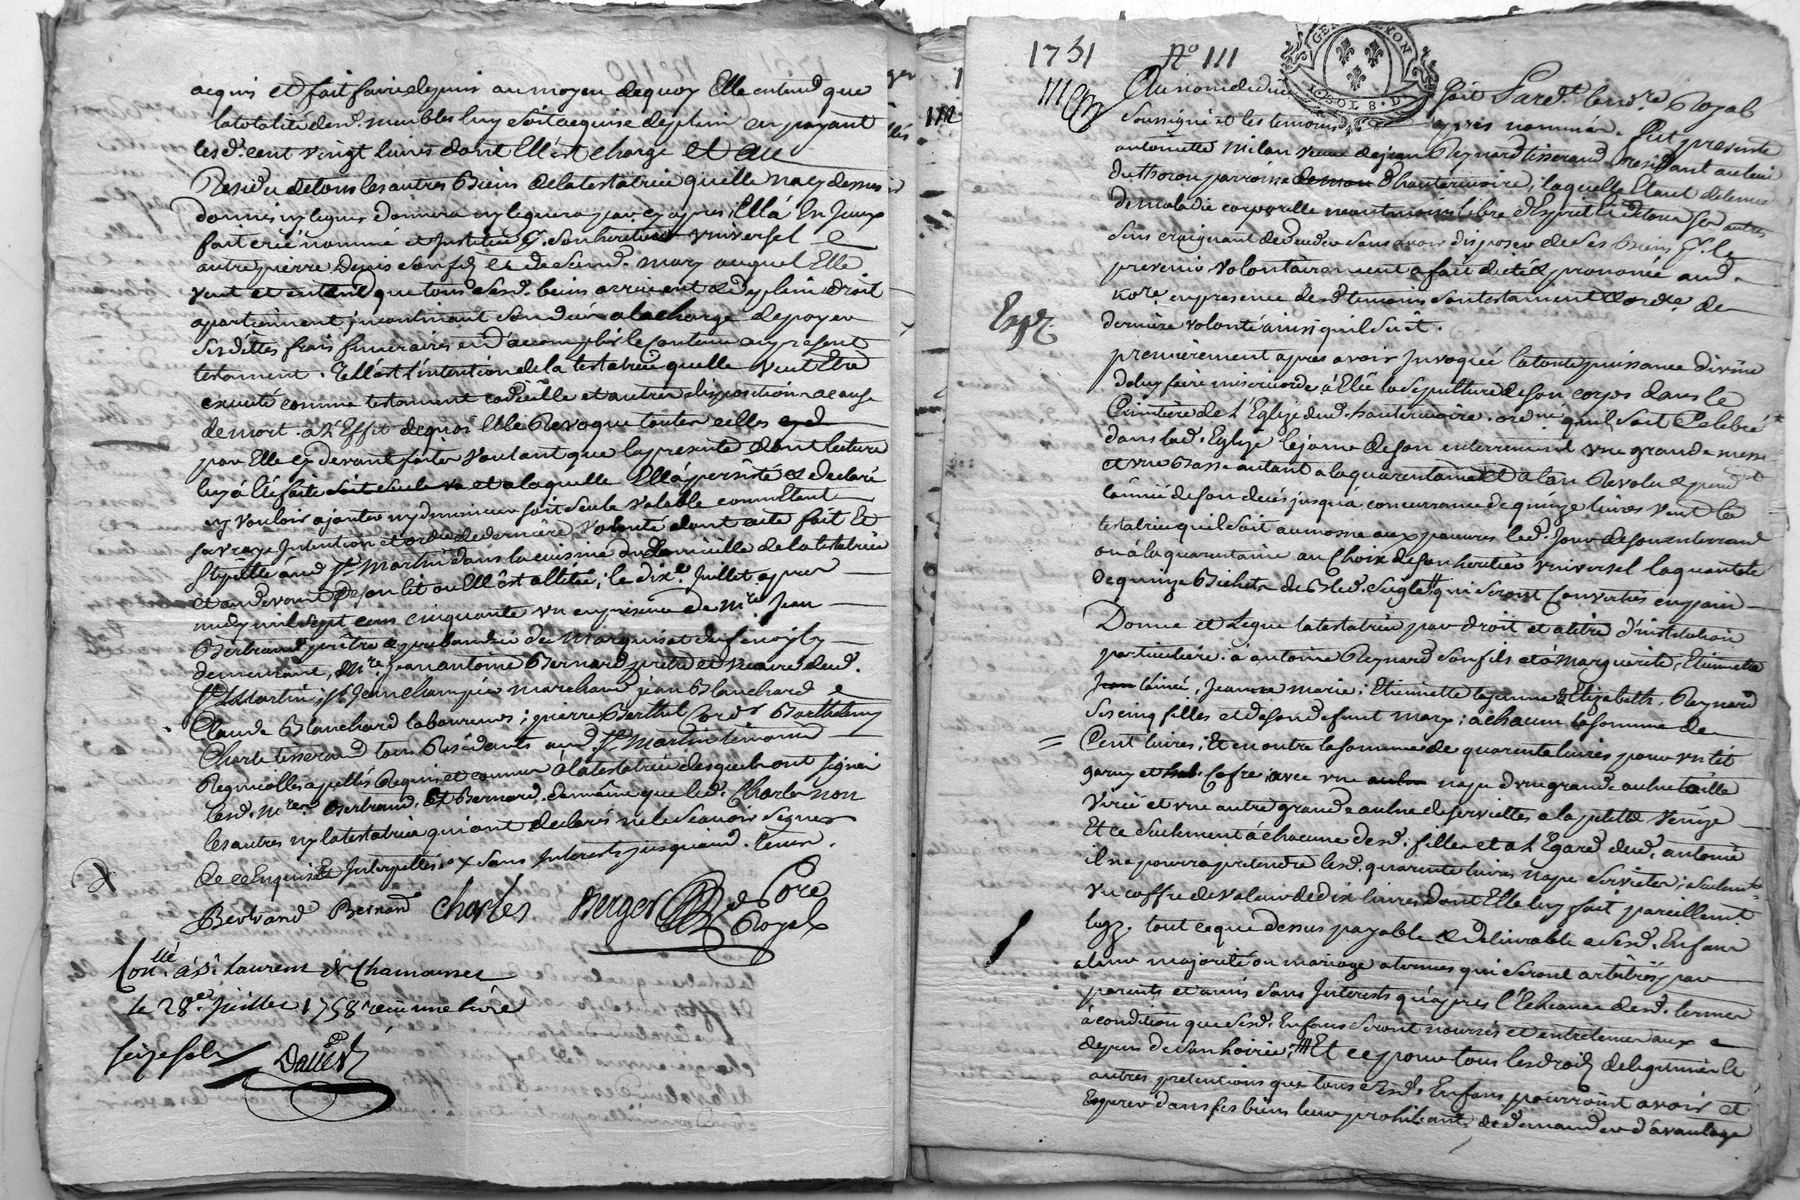 acquis et fait faire depuis au moyen de quoy Elle entend que
la totalité desd. meubles luy soit acquise de plein en payant
lesd. cent vingt livres dont Elle est charge Et au
Residu de tous les autres Biens de la testatrice qu'elle na cy dessus
donnés ny legués donnera ny leguera par cy apres, Ella En Jceux
fait créé nommé et Jnstitué son heritier universel
autre pierre Denis son fils et de sond. mary auquel Elle
veut et entend que tous sesd. biens arrivent & de plein droit
apartiennent jncontinant son decès a la charge de payer
ses dettes frais funeraires et d'accomplir le contenu au present
testament. Telle est l'intention de la testatrice quelle veut Etre
executé comme testament codicille et autres disposition a cause
de mort a L'Effet de quoi Elle Revoque toutes celles
par Elle cy devant faites voulant que la presente dont lecture
luy a Eté faite et a laquelle Ella persisté & declaré
ny vouloir ajouter ny diminuer soit seule valable comme Etant
sa vraye Jntention et ordre de derniere volonté dont acte fait Et
Stipullé aud. St. Martin dans la cuisine du domicille de la testatrice
et au devant de son lit ou Elle est allitée, le dixe. Juillet apres
midy mil sept cens cinquante un en presence de mre. Jean
Bertrand prêtre et prebandier du Marquisat
demeurant, mre. Jean antoine Bernard prêtre et vicaire dud.
St. Martin, Sr. Jean Champier marchand, jean Blanchard
Claude Blanchard laboureurs; pierre Berthet Cordr. Barthelemy
Charle tisserand tous Residants aud. St. Martin temoins
Regnicolles apellés Requis et connus a la testatrice desquels ont signé
lesd. mres. Bertrand, Et Bernard, de même que led. Charles non
les autres ny la testatrice qui ont declaré ne le sçavoir signer
de ce Enquis Et Interpellés. x sans Jnterests jusquaud. terme.
Bertrand Bernard Charles Berger Nore
Royal
Conllé. à St Laurent de Chamousset
le 28e. Juillet 1758 reçu une livre
seize sols
1751 No 111
111
Au nom de dieu
soit Par dt. le nore. Royal
Soussigné et les temoins après nommés. fut presente
antoinette Milan veuve de jean Reynard tisserand Residant au lieu
du Thoron parroisse d'hauterivoire; laquelle Etant detenue
de maladie corporelle neantmoins libre d'Esprit et de tous ses autres
sens craignant de deceder sans avoir disposer de ses Biens
prevenir volontairement a fait dicté & prononcé aud.
Nore. en presence desd. temoins son testament & ordre de
derniere volonté ainsi qu'il suit.
Exp.
premierement apres avoir Jnvoqué la toute puissance divine
de luy faire misericorde a Elû la sepulture de son corps dans le
Cimitiere de L'Eglize dud. hauterivoire. ordne. qu'il soit Celebré
dans lad. Eglize le jour de son enterrement une grande messe
et une Basse autant a la quarantaine Et a l'an Revolu & pendt.
l'année de son decès jusqu'à concurrance de quinze livres veut la
testatrice qu'il soit aumoné aux pauvres led. jour de son enterremt.
ou à la quarantaine au Choix de son heritier universel la quantité
de quinze Bichets de Bled Seigle qui seront Convertis en pain
Donne et Legue la testatrice par droit et a titre d'institution
particuliere. a antoine Reynard son fils et à marguerite, Etiennette
l'ainée, Jeanne marie, Etiennette la jeune & Elizabeth, Reynard
ses cinq filles et de son defunt mary; a chacun la somme de
Cent livres; Et en outre la somme de quarente livres pour un lit
garny et Cofre, avec une nape d'une grande aulne toille
Virée et une autre grande aulne de serviettes a la petitte venize
Et ce seulement à chacune desd. filles et a L'Egard dud. antoine
il ne pourra pretendre lesd. quarente livres, nape serviettes; seulemt.
un coffre de valeur de dix livres dont Elle luy fait pareillemt.
legz. tout ce que dessus payable & delivrable a sesd. Enfans
a leur majorité ou mariage a termes qui seront arbitrés par
parents et amis sans Jnterests qu'apres l'Echeance desd. termes
à condition que sesd. Enfans seront nourris et entretenus aux
depens de son hoirie, Et ce pour tous les droits de legitime &
autres pretentions que tous sesd. Enfans pourroint avoir et
Esperer dans ses biens leur prohibant de demander d'avantage